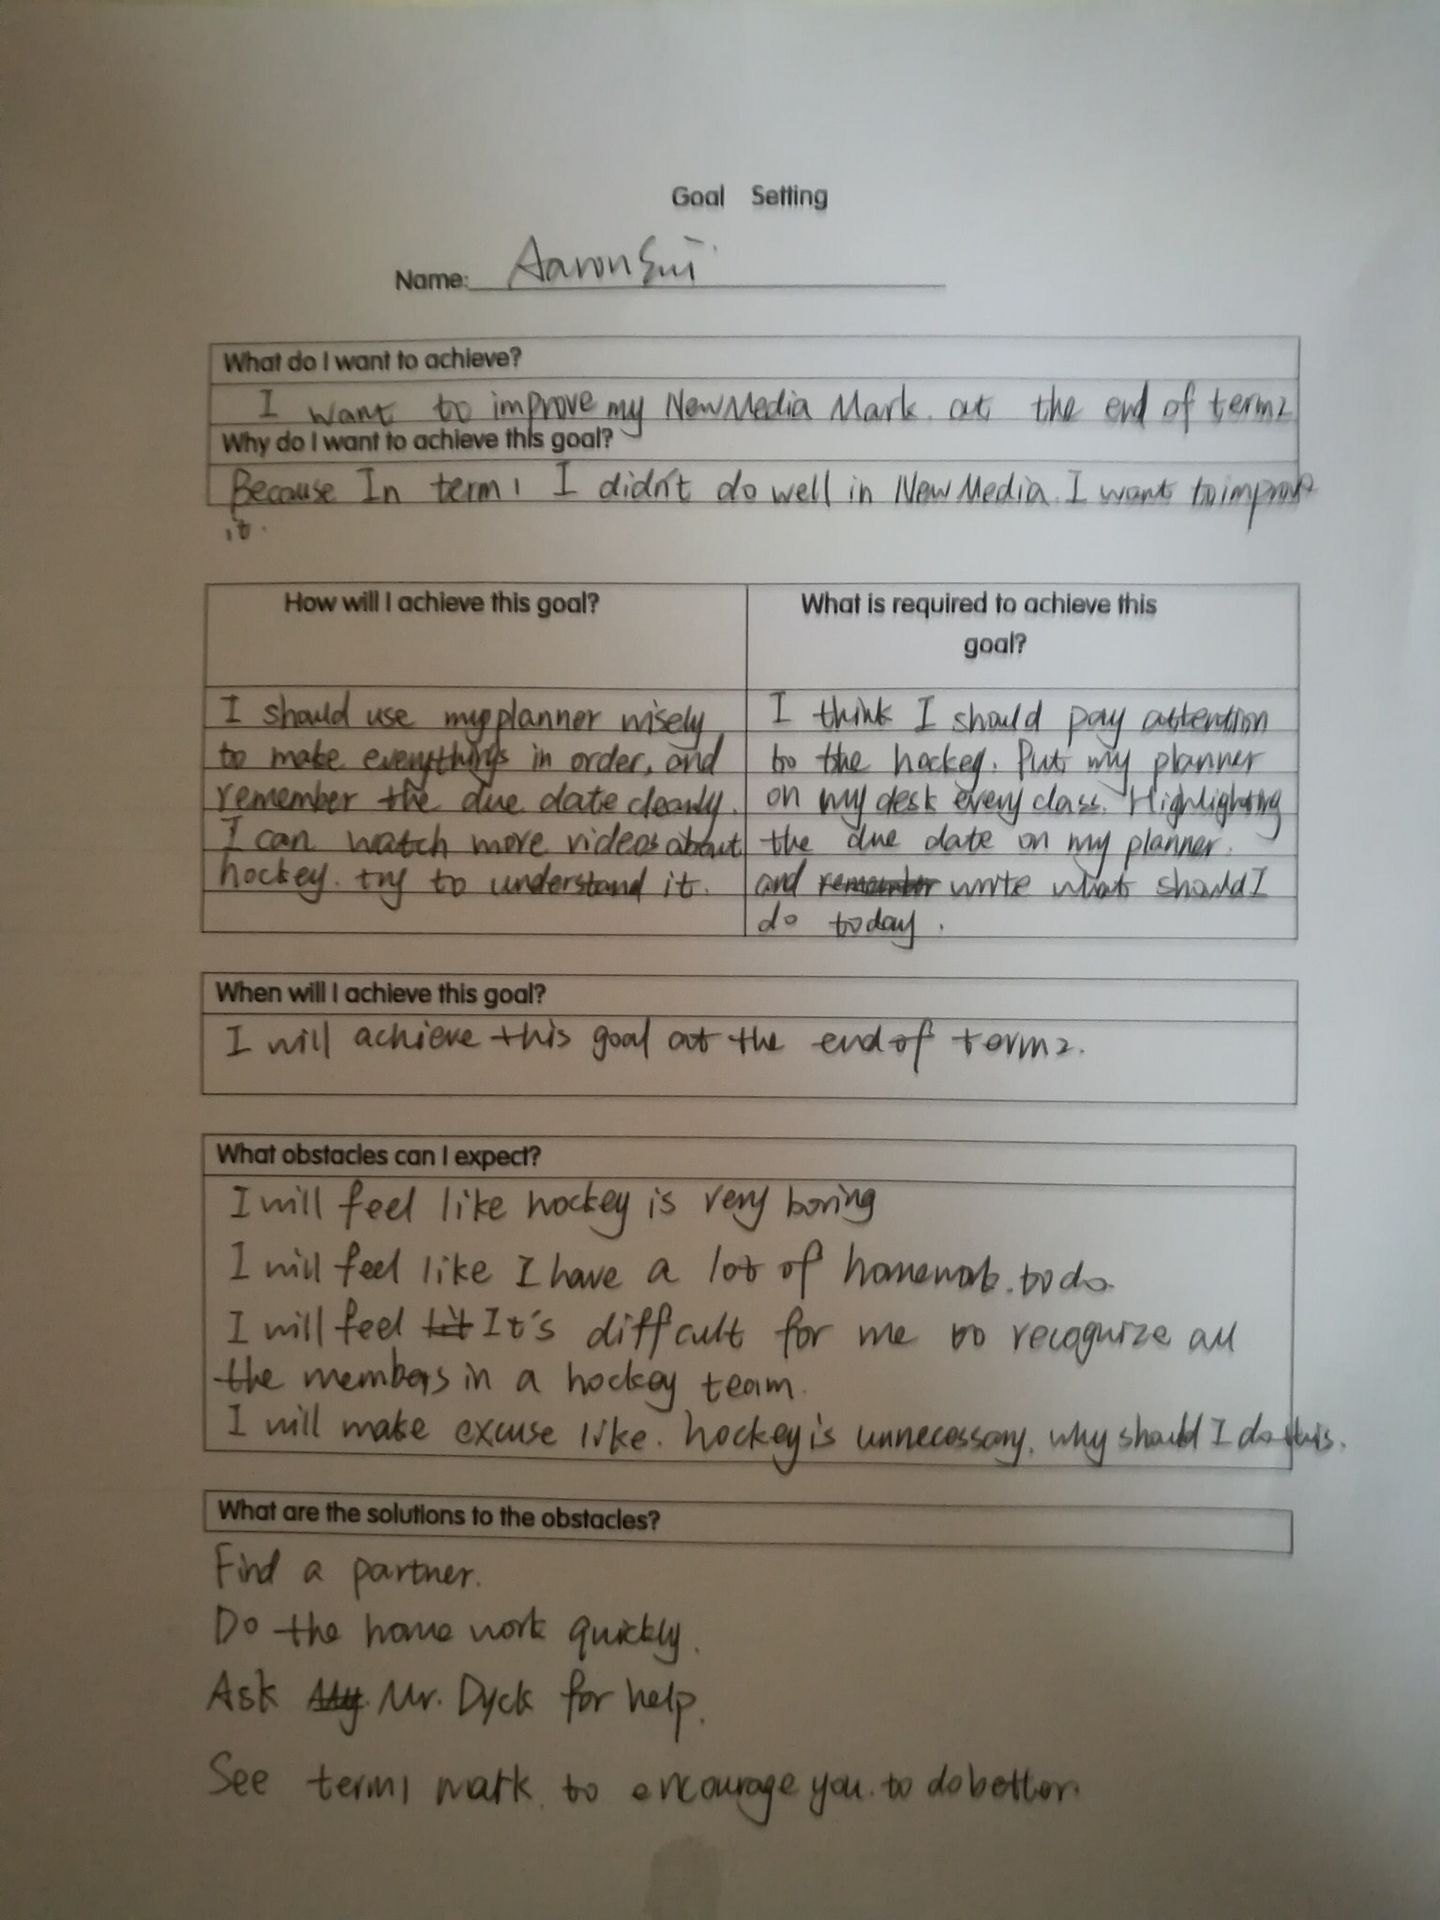 Goal Setting
Name: Aaron Sui
What do I want to achieve?
I want to improve my New Media Mark. at the end of term2
Why do I want to achieve this goal?
Because In term1 I didn't do well in New Media. I want to improve
it.
How will I achieve this goal?
I should use my planner wisely
to make everythings in order, and
remember the due date clearly.
I can watch more videos about
hockey. try to understand it.
What is required to achieve this
goal?
I think I should pay attention
to the hockey. Put my planner
on my desk every class. Highlighting
the due date on my planner.
and remember write what should I
do today.
When will I achieve this goal?
I will achieve this goal at the end of term2.
What obstacles can I expect?
I will feel like hockey is very boring
I will feel like I have a lot of homework. to do
I will feel It's difficult for me to recognize all
the members in a hockey team.
I will make excuse like. hockey is unnecessary. why should I do this.
What are the solutions to the obstacles?
Find a partner.
Do the home work quickly.
Ask Mr. Dyck for help.
See term1 mark. to encourage you. to do better.